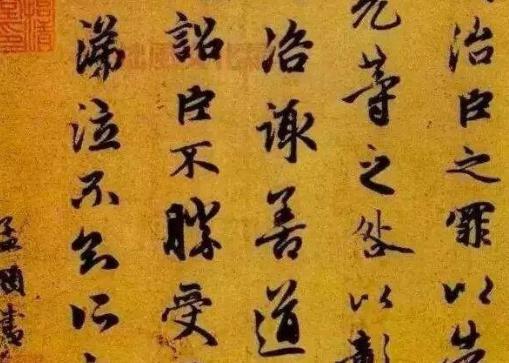 治臣之罪以告
允等之咎以彰
咨諏善道
詔臣不勝受
涕泣不知所
孟頫書